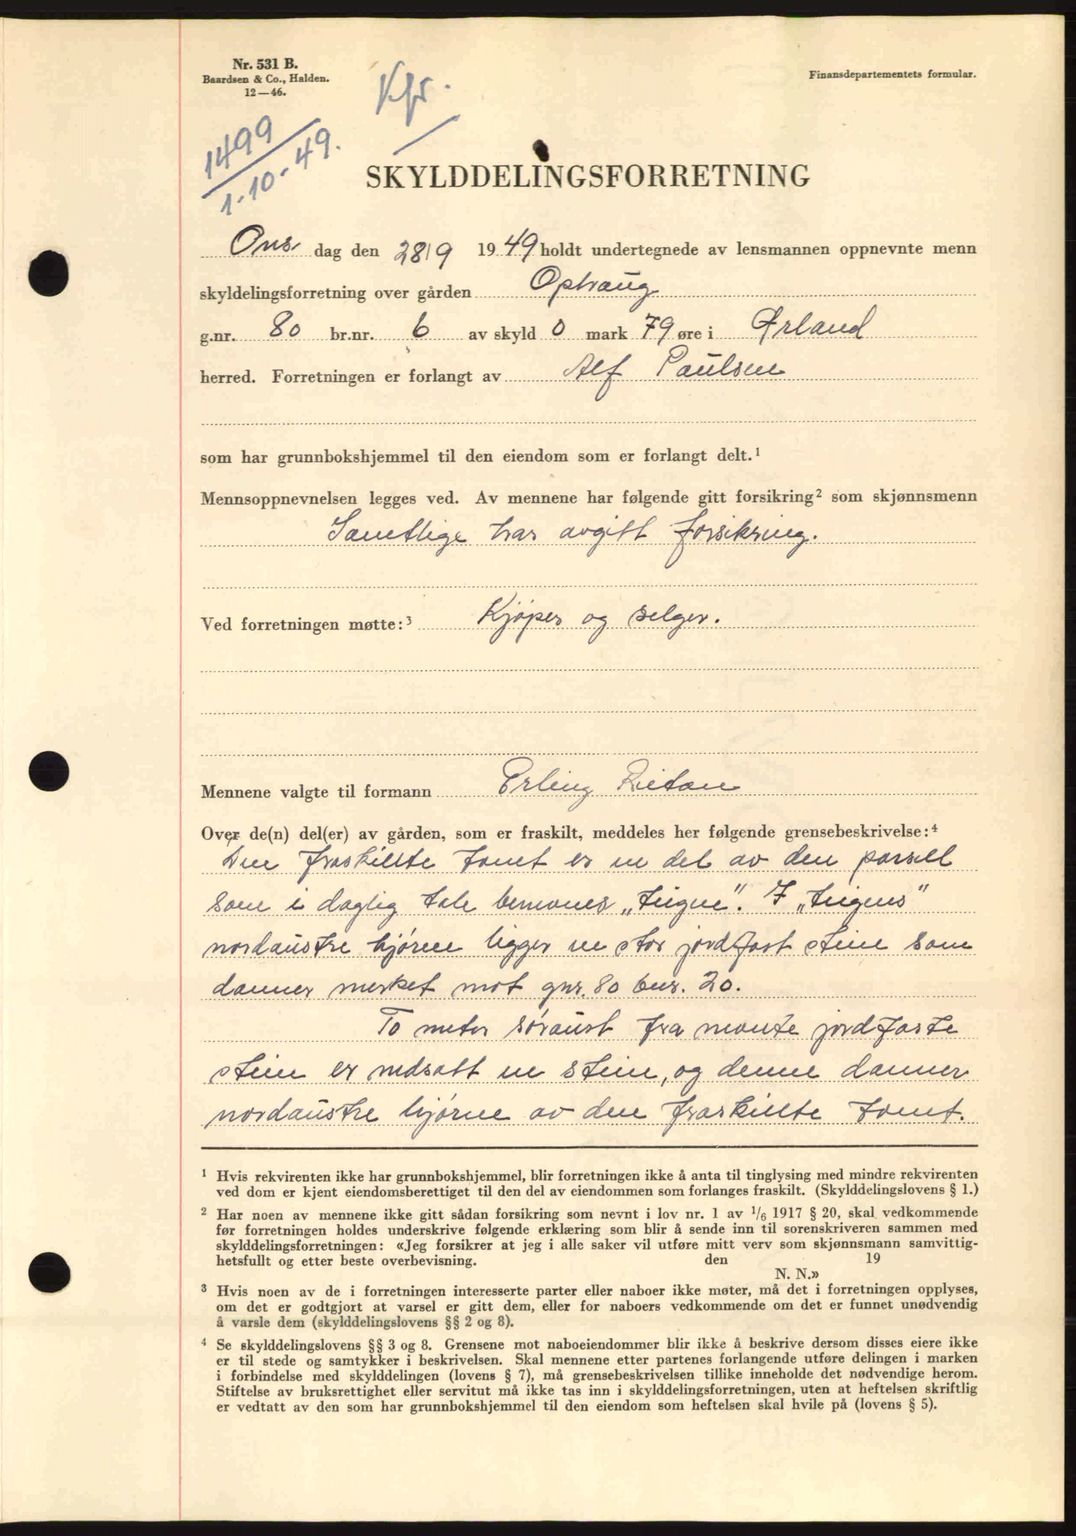 Nr. 531 B.
Baardsen & Co., Halden.
12—46.
Kfr.
Finansdepartementets formular.
1499
1-10-49.
SKYLDDELINGSFORRETNING
Ons dag den 28/9 1949 holdt undertegnede av lensmannen oppnevnte menn
skyldelingsforretning over gården Ophaug
g.nr. 80 br.nr. 6 av skyld 0 mark 79 øre i Ørland
herred. Forretningen er forlangt av Alf Paulsen
som har grunnbokshjemmel til den eiendom som er forlangt delt.¹
Mennsoppnevnelsen legges ved. Av mennene har følgende gitt forsikring² som skjønnsmenn
Samtlige har avgitt forsikring.
Ved forretningen møtte:³ Kjøper og selger.
Mennene valgte til formann Erling Rietan
Over de(n) del(er) av gården, som er fraskilt, meddeles her følgende grensebeskrivelse:⁴
Den fraskillte tomt er en del av den parsell
som i daglig tale benevnes „Teigen”. I „Teigens”
nordaustre hjørne ligger en stor jordfast stein som
danner merket mot gnr. 80 bnr. 20.
To meter søraust fra nevnte jordfaste
stein er nedsatt en stein, og denne danner
nordaustre hjørne av den fraskillte tomt.
¹ Hvis rekvirenten ikke har grunnbokshjemmel, blir forretningen ikke å anta til tinglysing med mindre rekvirenten
ved dom er kjent eiendomsberettiget til den del av eiendommen som forlanges fraskilt. (Skylddelingslovens § 1.)
² Har noen av mennene ikke gitt sådan forsikring som nevnt i lov nr. 1 av ¹/₆ 1917 § 20, skal vedkommende
før forretningen holdes underskrive følgende erklæring som blir å sende inn til sorenskriveren sammen med
skylddelingsforretningen: «Jeg forsikrer at jeg i alle saker vil utføre mitt verv som skjønnsmann samvittig-
hetsfullt og etter beste overbevisning. den 19
N. N.»
³ Hvis noen av de i forretningen interesserte parter eller naboer ikke møter, må det i forretningen opplyses,
om det er godtgjort at varsel er gitt dem, eller for naboers vedkommende om det er funnet unødvendig
å varsle dem (skylddelingslovens §§ 2 og 8).
⁴ Se skylddelingslovens §§ 3 og 8. Grensene mot naboeiendommer blir ikke å beskrive dersom disses eiere ikke
er til stede og samtykker i beskrivelsen. Skal mennene etter partenes forlangende utføre delingen i marken
i forbindelse med skylddelingen (lovens § 7), må grensebeskrivelsen tillike inneholde det nødvendige herom.
Stiftelse av bruksrettighet eller servitut må ikke tas inn i skylddelingsforretningen, uten at heftelsen skriftlig
er vedtatt av den som har grunnbokshjemmel til den eiendom som heftelsen skal hvile på (lovens § 5).